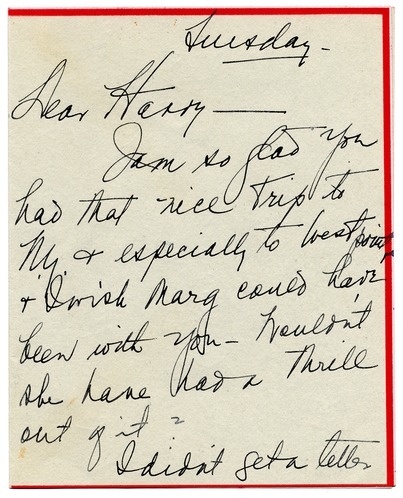 Tuesday-
Dear Harry —
I am so glad you
had that nice trip to
N.Y. + especially to West Point
+ I wish Marg could have
been with you - Wouldn't
she have had a thrill
out of it?
I didn't get a letter